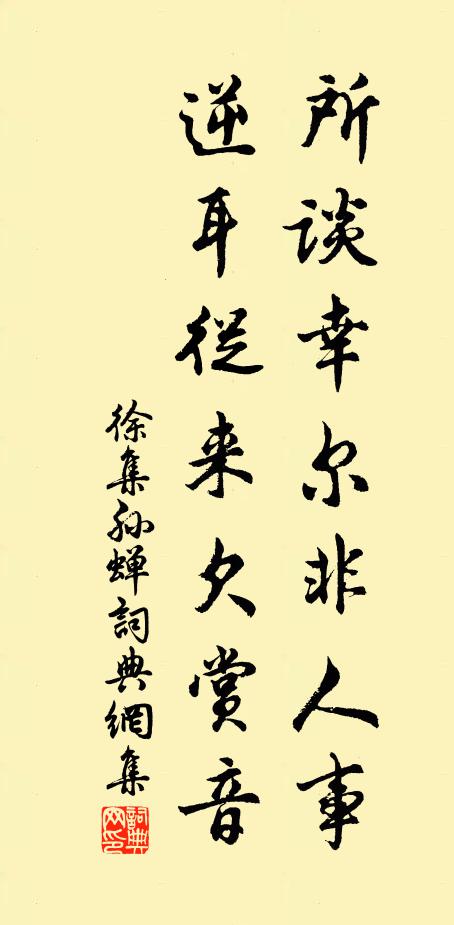 所谈幸尔非人事
逆耳從来欠赏音
徐集孙蝉詞典網集
詞典网印